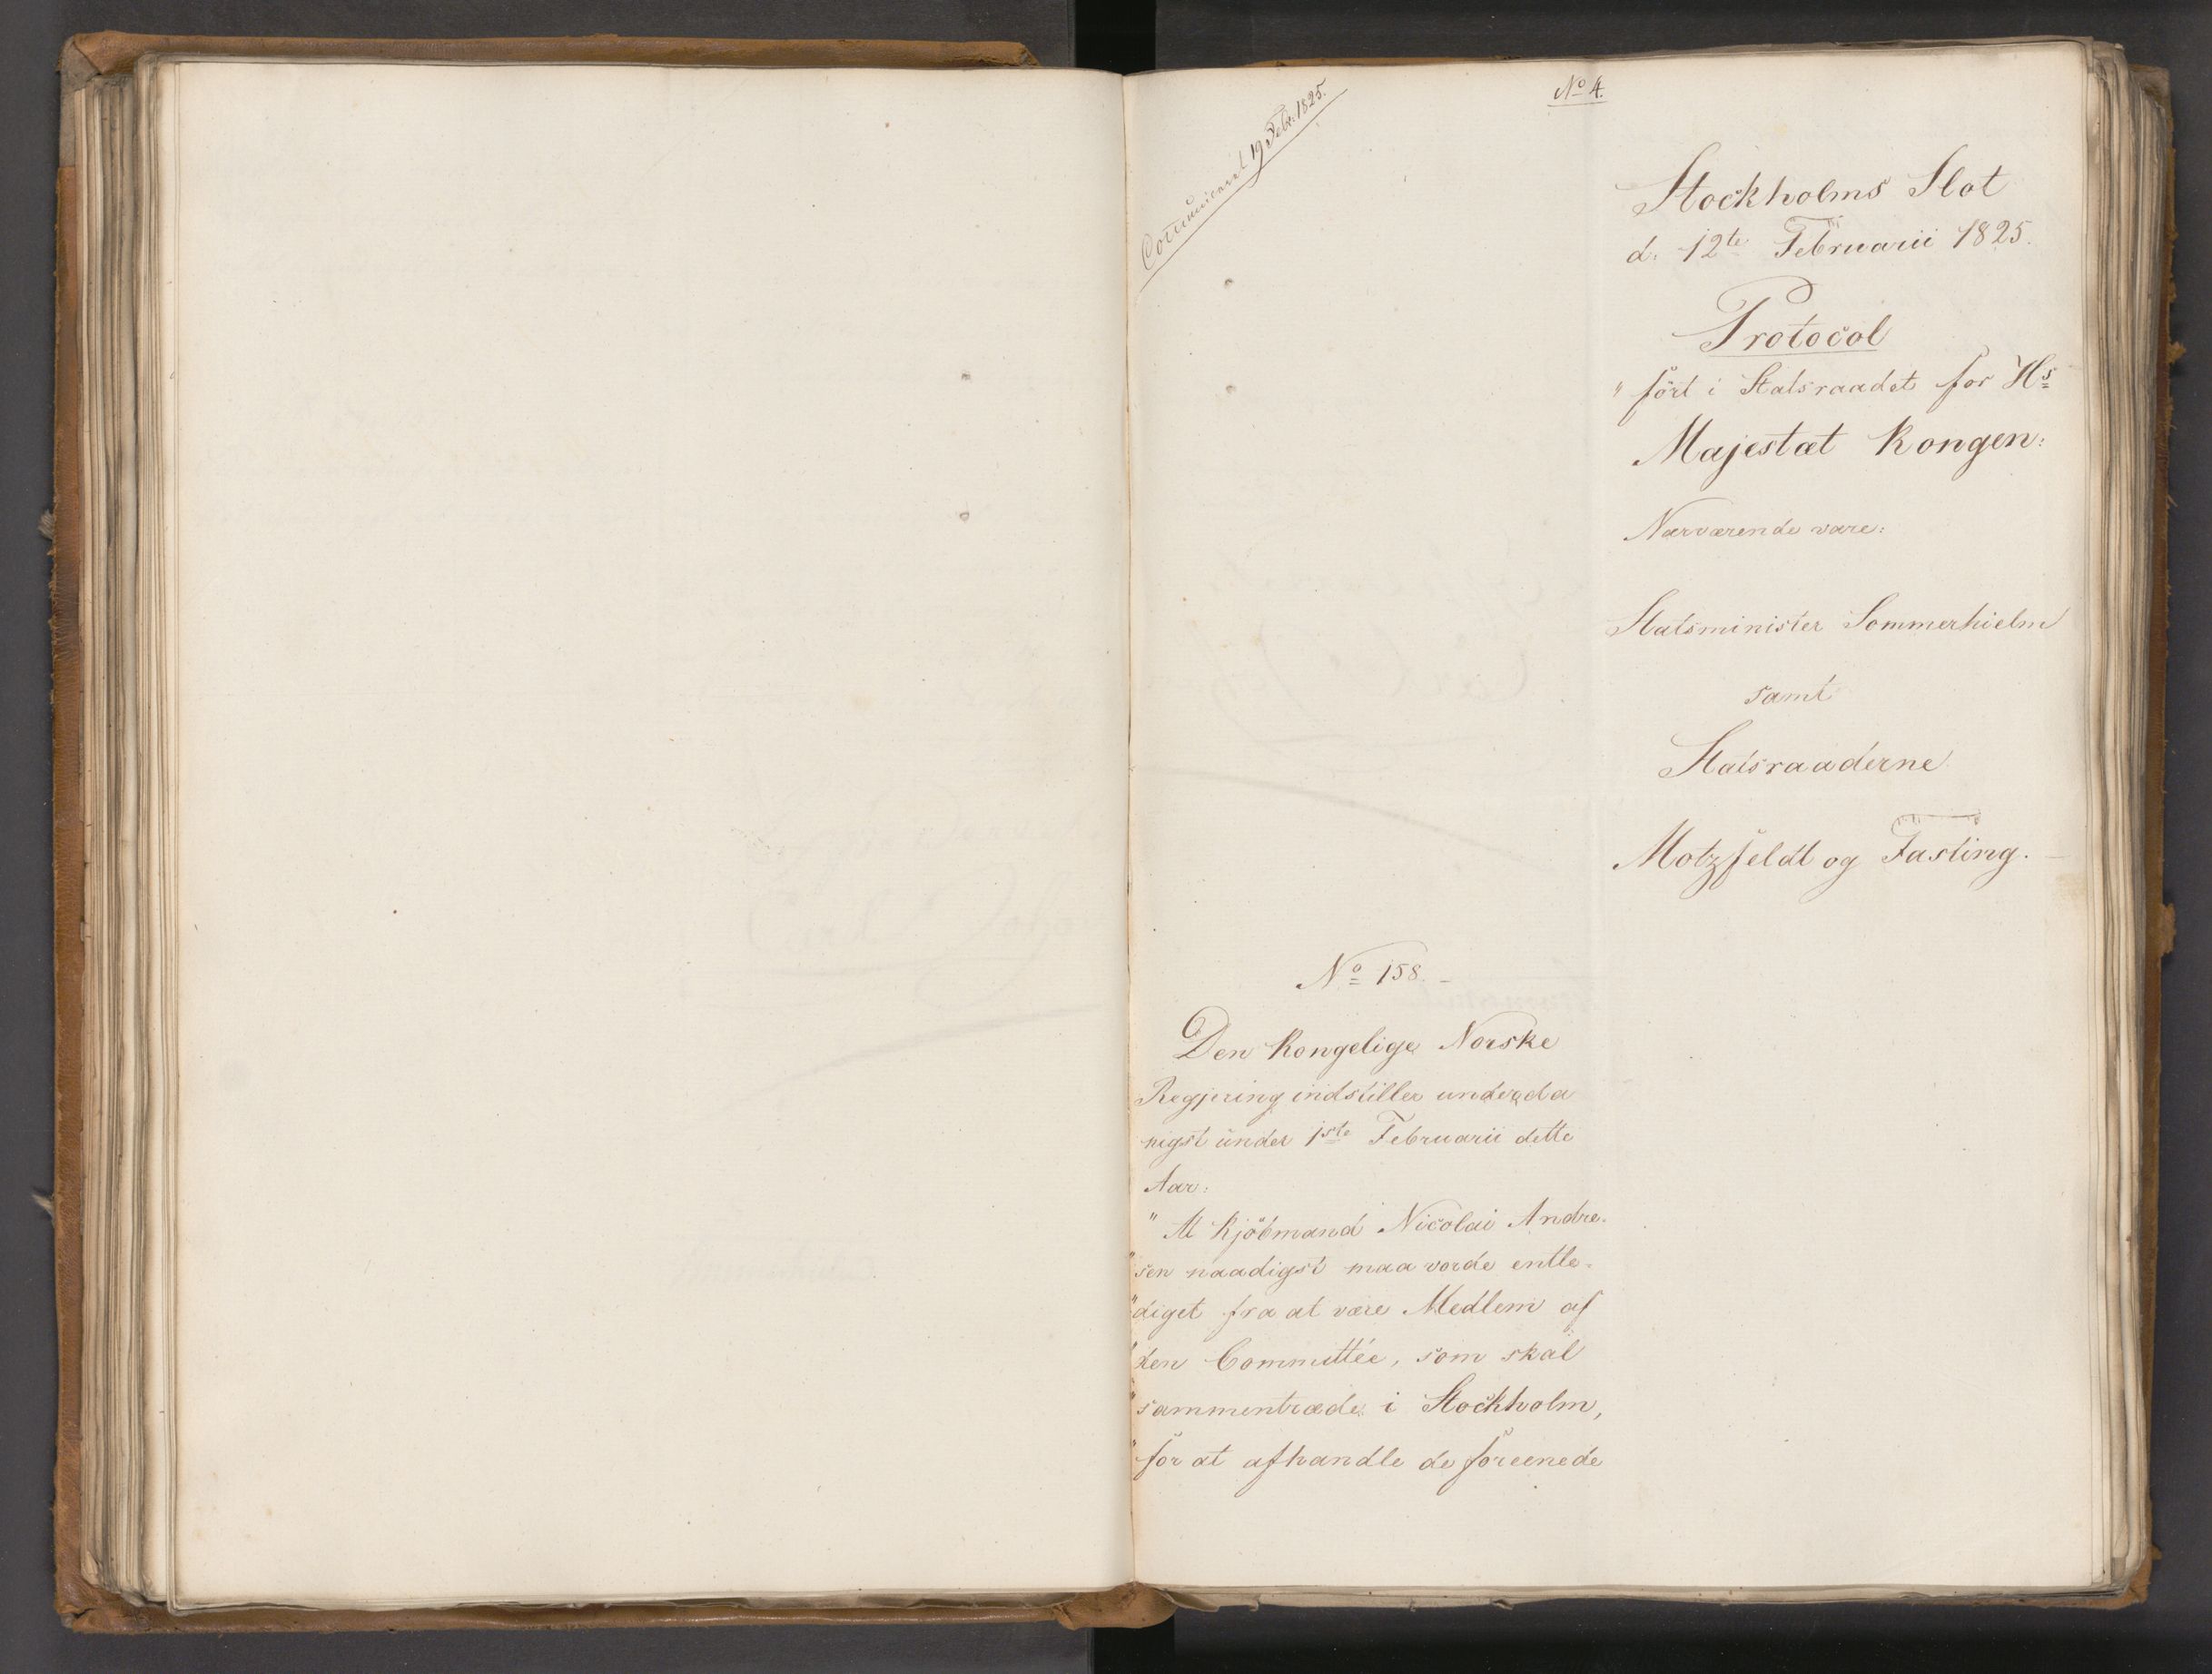 No 4.
Communicert 19 Febr: 1825.
Stockholms Slot
d: 12te Februarii 1825.
Protocol
" fört i Statsraadet for Hs
Majestæt Kongen:
Nærværende være:
Statsminister Sommerhielm
samt
Statsraaderne
Motzfeldt og Fasting.
No 158.
Den Kongelige Norske
Regjering indstiller underda
nigst under 1ste Februarii dette
Aar:
" At Kjöbmand Nicolai Andre-
" sen naadigst maa vorde entle-
" diget fra at være Medlem af
" den Committée, som skal
" sammentræde i Stockholm,
" for at afhandle de foreenede